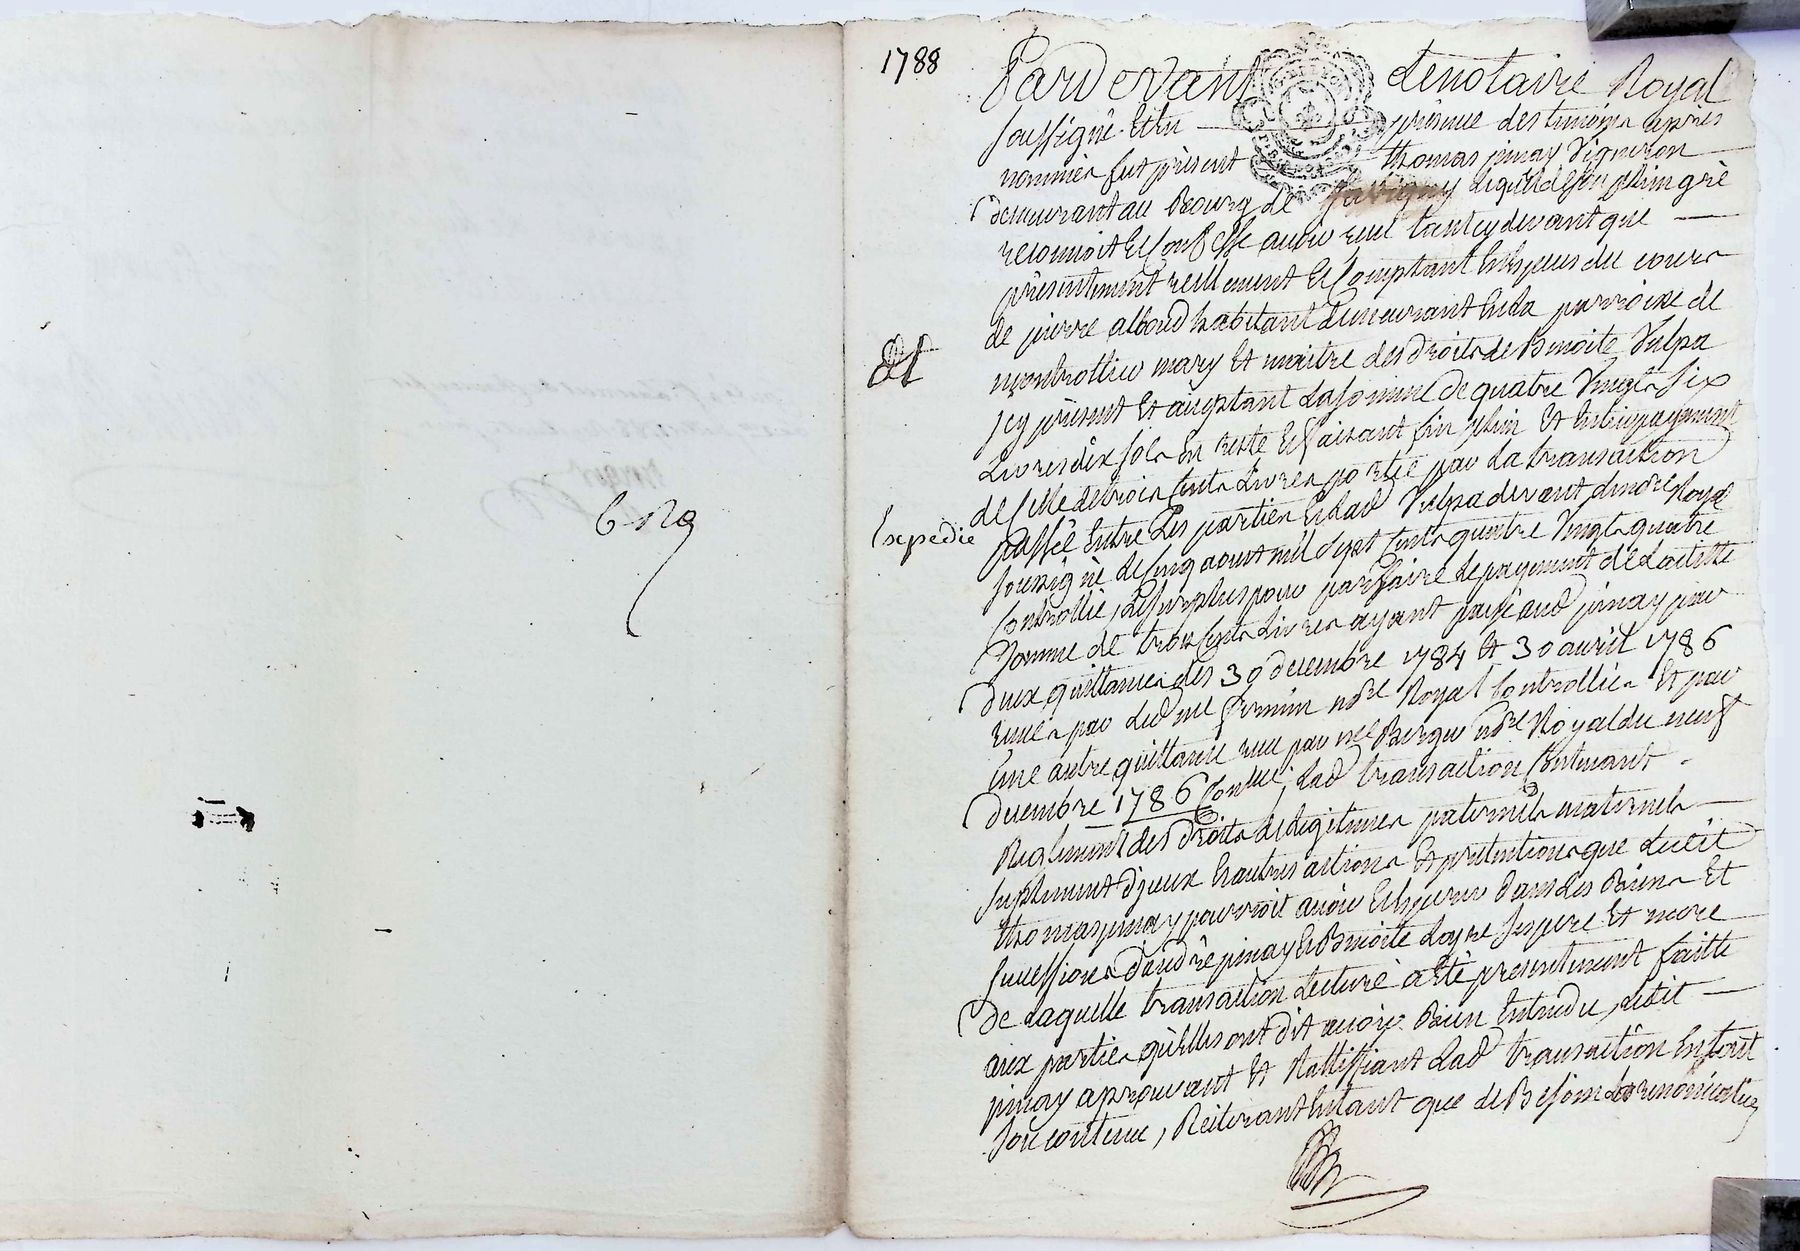 1788
Pardevant Le notaire Royal
soussigné Et En présence des temoins apres
nommés fut présent thomas pinay Vigneron
demeurant au Bourg de Lequel de son plein gré
reconnoit Et Confesse avoir reçu tant cy devant que
présentement reellement Et Comptant En Especes du cours
de pierre alboud habitant demeurant En la parroisse de
montrottier mary Et maitre des droits de Benoite Vulpa
Jcy présent Et acceptant La somme de quatre Vingts Six
Livres dix sols En reste Et faisant fin plein Et Entier payement
de Celle de trois Cents Livres portée par La transaction
passée Entre Les parties Et Lad Vulpa devant Le nore Royal
soussigné Le Cinq aoust mil Sept Cents quatre Vingts quatre
Controllée, Le surplus pour parfaire Le payement de Laditte
Somme de trois Cents Livres ayant payé aud pinay par
deux quittances des 30 decembre 1784 Et 30 avril 1786
reçues par Led me nore Royal Controllées Et par
Une autre quittance reçue par me Berger nore Royal du neuf
decembre 1786 Conllée, Lad transaction Contenant
Reglement des droits de Legitimes paternels maternels
suplement d'jceux Et autres actions Et prétentions que Ledit
thomas pinay pourroit avoir Et Esperer dans Les Biens Et
successions d'andré pinay Et Benoite Ses pere Et mere
De Laquelle transaction Lecture a Eté presentement faitte
aux parties qu'Elles ont dit avoir Bien Entendu, Ledit
pinay aprouvant Et Rattiffiant Lad transaction En tout
son contenu, Reiterant En tant que de Besoin Les renonciations
Et
Expedié